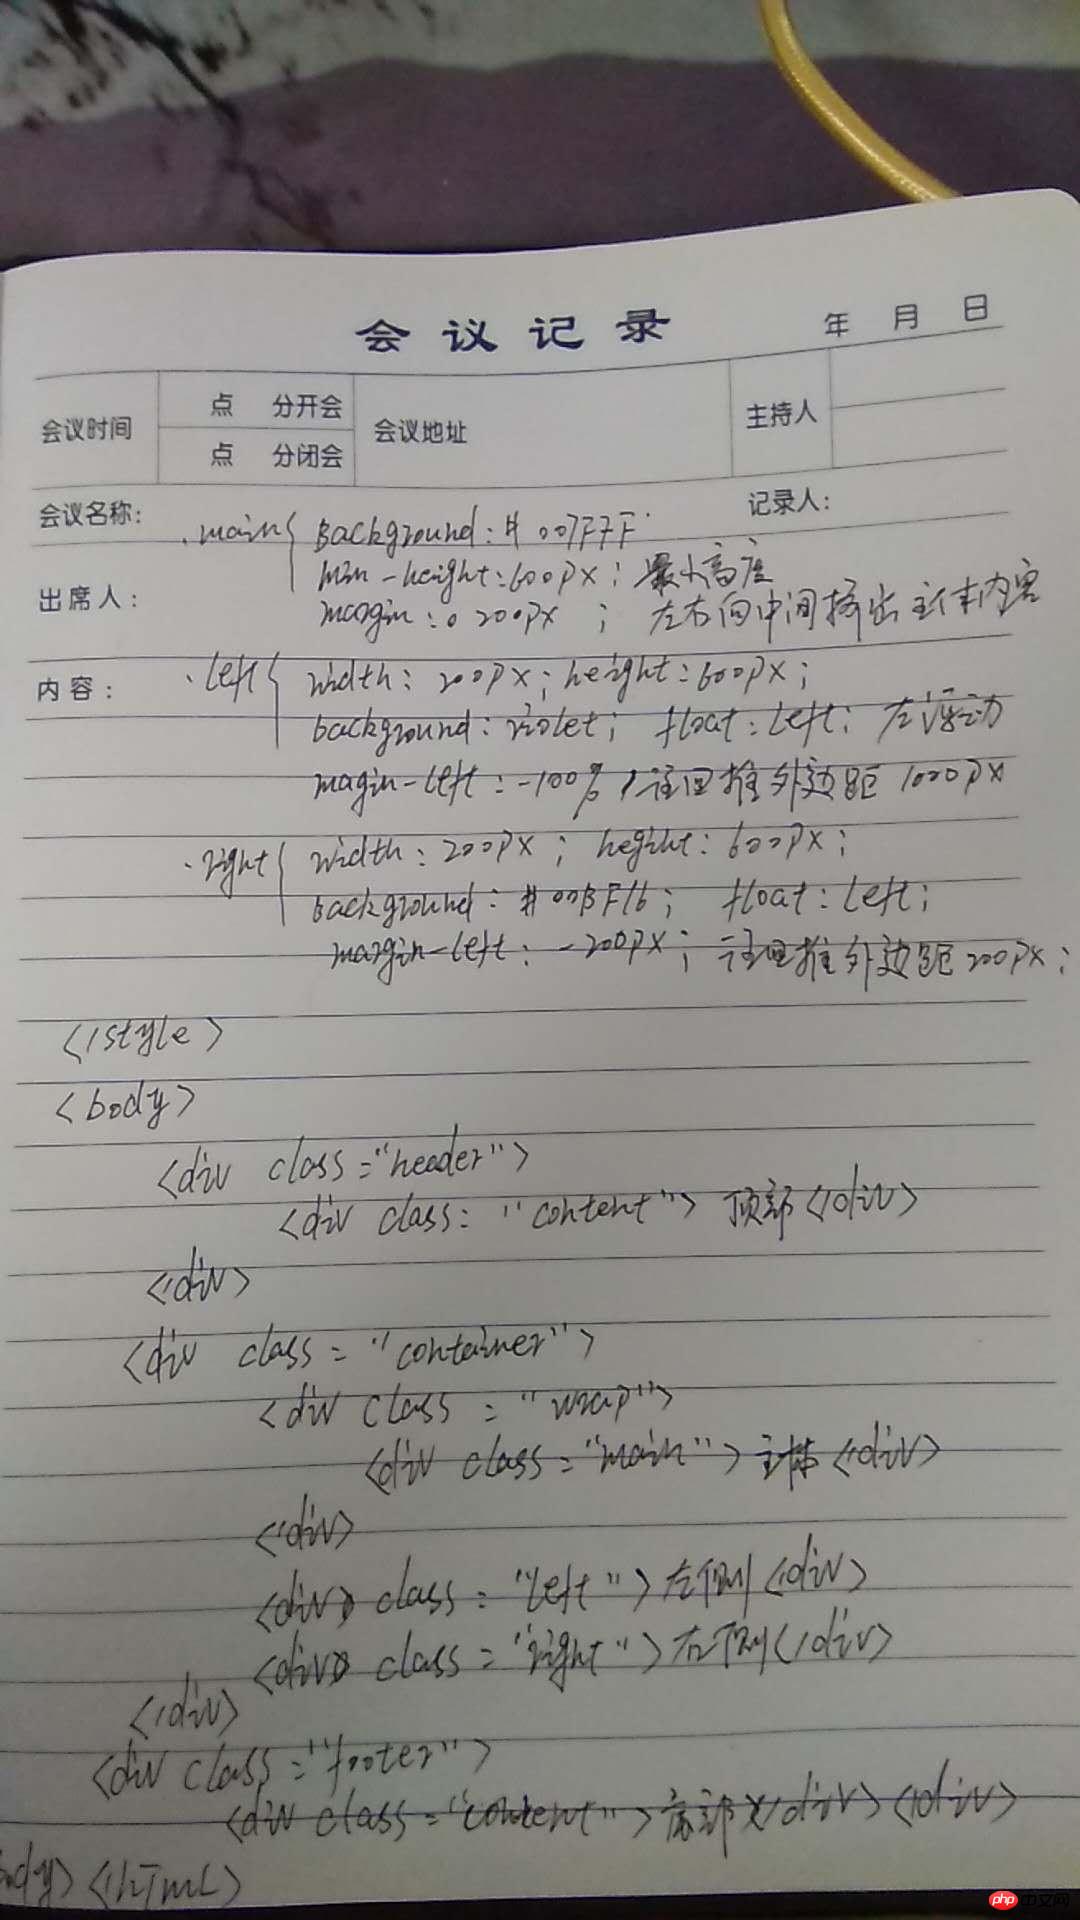 会议记录
年 月 日
会议时间 点 分开会 会议地址 主持人
点 分闭会
会议名称: 记录人:
.main{ Background: # 007F7F
min-height: 600px; 最小高度
出席人:
margin: 0 200px ; 左右向中间挤出主体内容
内容: .left{ width: 200px; height: 600px;
background: violet; float: left; 左浮动
magin-left: -100% 往回推外边距 1000px
.right{ width: 200px; heginht: 600px;
background: # 00BF16; float: left;
margin-left: -200px; 往回推外边距200px;
</style>
<body>
<div class="header">
<div class: "content"> 顶部</div>
</div>
<div class = "container">
<div class = "wrap">
<div class = "main"> 主体</div>
</div>
<div> class = "left"> 左侧</div>
<div> class = "right"> 右侧</div>
</div>
<div class="footer">
<div class="content"> 底部</div> </div>
ody> </hTmL>
php 中文网